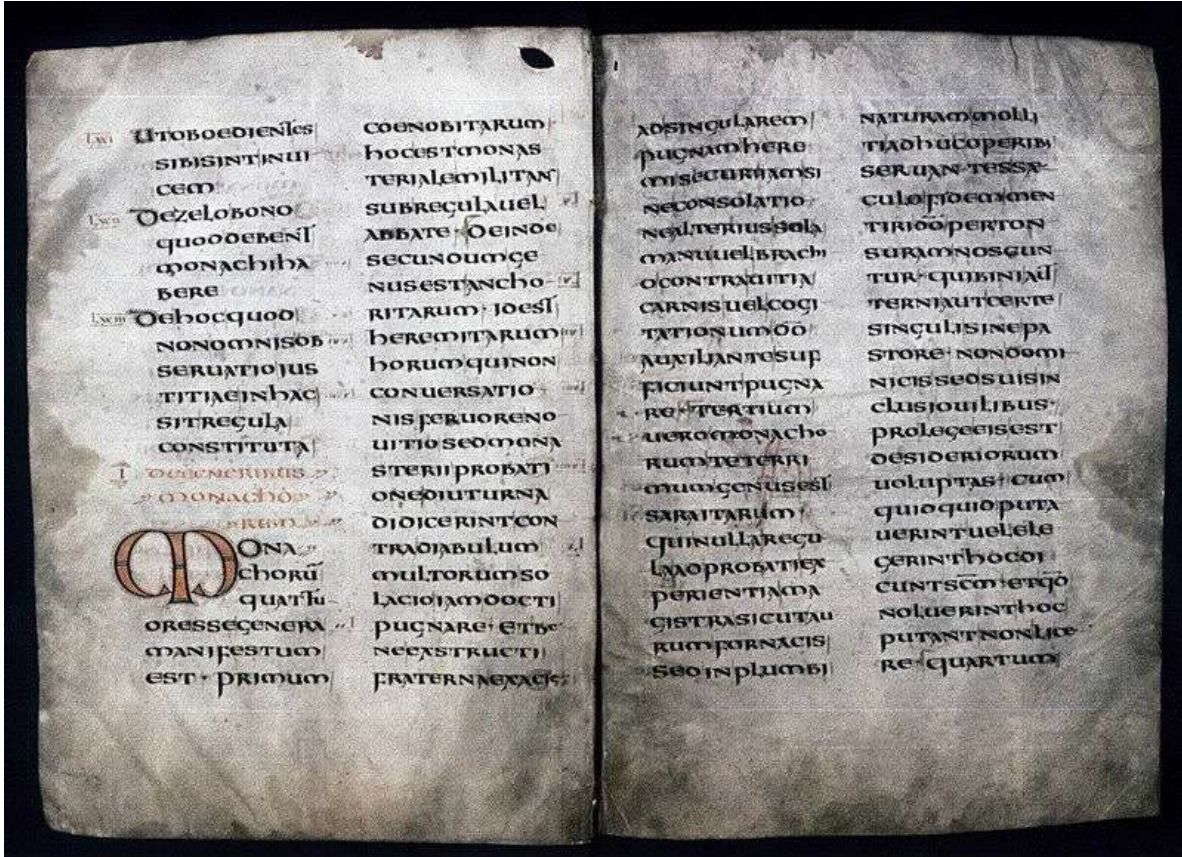 UTOBOEDIENTES
SIBISINTINUI
CEM
DEZELOBONO
QUODDEBENT
MONACHIHA
BERE
DEHOCQUOD
NONOMNISOB
SERUATIOIUS
TITIAEINHAC
SITREGULA
CONSTITUTA
I DEGENERIBUS
MONACHO
RUM
MONA
CHORŪ
QUATTU
ORESSEGENERA
MANIFESTUM
EST· PRIMUM
COENOBITARUM
HOCESTMONAS
TERIALEMILITAN
SUBREGULAUEL
ABBATE· DEINDE
SECUNDUMGE
NUSESTANCHO
RITARUM· IDEST
HEREMITARUM
HORUMQUINON
CONUERSATIO
NISFERUORENO
UITIOSEDMONA
STERIIPROBATI
ONEDIUTURNA
DIDICERINTCON
TRADIABULUM
MULTORUMSO
LACIOIAMDOCTI
PUGNARE· ETBE
NEEXSTRUCTI
FRATERNAEXACIE
ADSINGULAREM
PUGNAMHERE
MISECURIIAMSI
NECONSOLATIO
NEALTERIUSSOLA
MANUUELBRACHI
OCONTRAUITIA
CARNISUELCOGI
TATIONUMD̄Ō
AUXILIANTESUF
FICIUNTPUGNA
RE· TERTIUM
UEROMONACHO
RUMTETERRI
MUMGENUSEST
SARAITARUM
QUINULLAREGU
LAADPROBATIEX
PERIENTIAMA
GISTRASICUTAU
RUMFORNACIS
SEDINPLUMBI
NATURAMMOLLI
TIADHUCOPERIBI
SERUANTESSAE
CULOFIDEMMEN
TIRID̄ŌPERTON
SURAMNOSCUN
TUR· QUIBINIAUT
TERNIAUTCERTE
SINGULISINEPA
STORE· NONDOMI
NICISSEDSUISIN
CLUSIOUILIBUS·
PROLEGEEISEST
DESIDERIORUM
UOLUPTAS· CUM
QUIDQUIDPUTA
UERINTUELELE
GERINTHOCDI
CUNTSC̄M· ETQ̄D
NOLUERINTHOC
PUTANTNONLICE
RE· QUARTUM